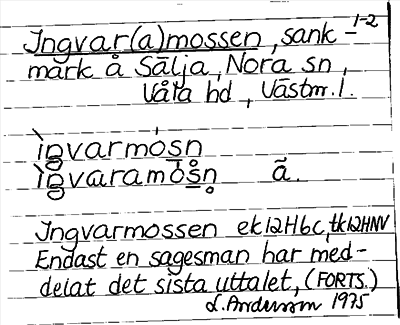 Ingvar(a)mossen, sank- 1-2
mark å Sälja, Nora sn,
Våla hd, Västm. l.
ìŋvarmósn
ìŋvaramósn ã.
Ingvarmossen ek12H6c, tk12HNV
Endast en sagesman har med-
delat det sista uttalet, (FORTS.)
L. Andersson 1975